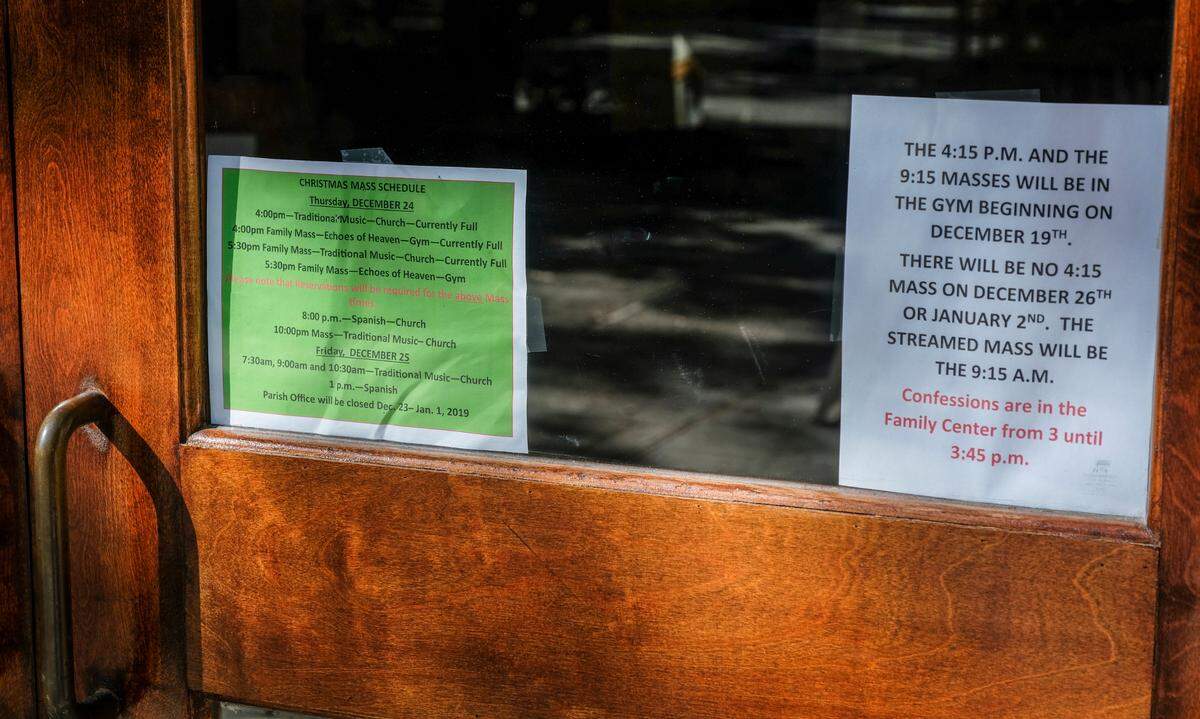 CHRISTMAS MASS SCHEDULE
Thursday, DECEMBER 24
4:00pm—Traditional Music—Church—Currently Full
4:00pm Family Mass—Echoes of Heaven—Gym—Currently Full
5:30pm Family Mass—Traditional Music—Church—Currently Full
5:30pm Family Mass—Echoes of Heaven—Gym
Please note that Reservations will be required for the above Mass
times.
8:00 p.m.—Spanish—Church
10:00pm Mass—Traditional Music– Church
Friday, DECEMBER 25
7:30am, 9:00am and 10:30am—Traditional Music—Church
1 p.m.—Spanish
Parish Office will be closed Dec. 23– Jan. 1, 2019
THE 4:15 P.M. AND THE
9:15 MASSES WILL BE IN
THE GYM BEGINNING ON
DECEMBER 19TH.
THERE WILL BE NO 4:15
MASS ON DECEMBER 26TH
OR JANUARY 2ND. THE
STREAMED MASS WILL BE
THE 9:15 A.M.
Confessions are in the
Family Center from 3 until
3:45 p.m.